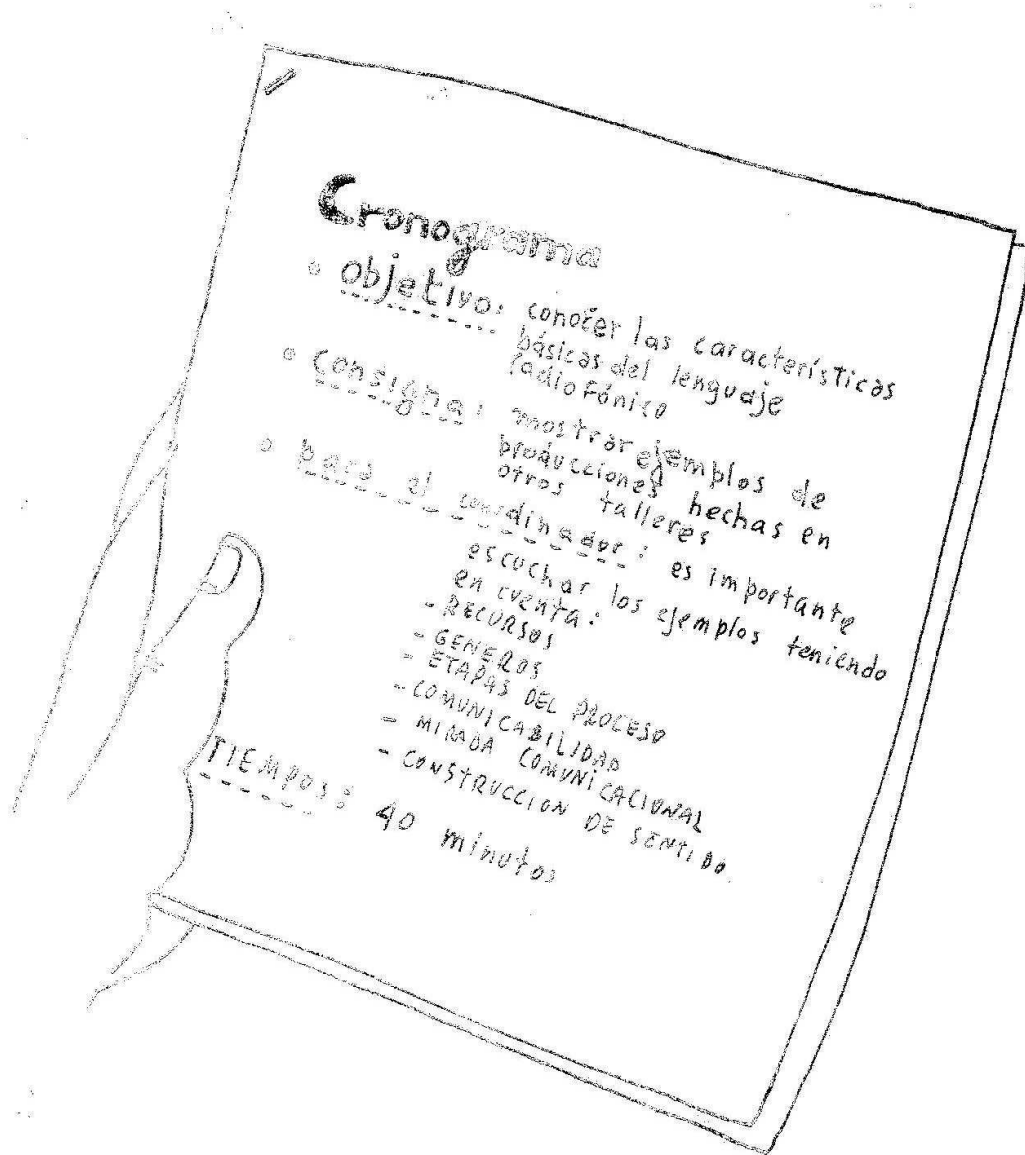 Cronograma
• objetivo: conocer las características
básicas del lenguaje
radiofónico
• consigna: mostrar ejemplos de
producciones hechas en
otros talleres
• para el coordinador: es importante
escuchar los ejemplos teniendo
en cuenta:
- RECURSOS
- GENEROS
- ETAPAS DEL PROCESO
- COMUNICABILIDAD
- MIRADA COMUNICACIONAL
- CONSTRUCCION DE SENTIDO.
TIEMPOS: 40 minutos